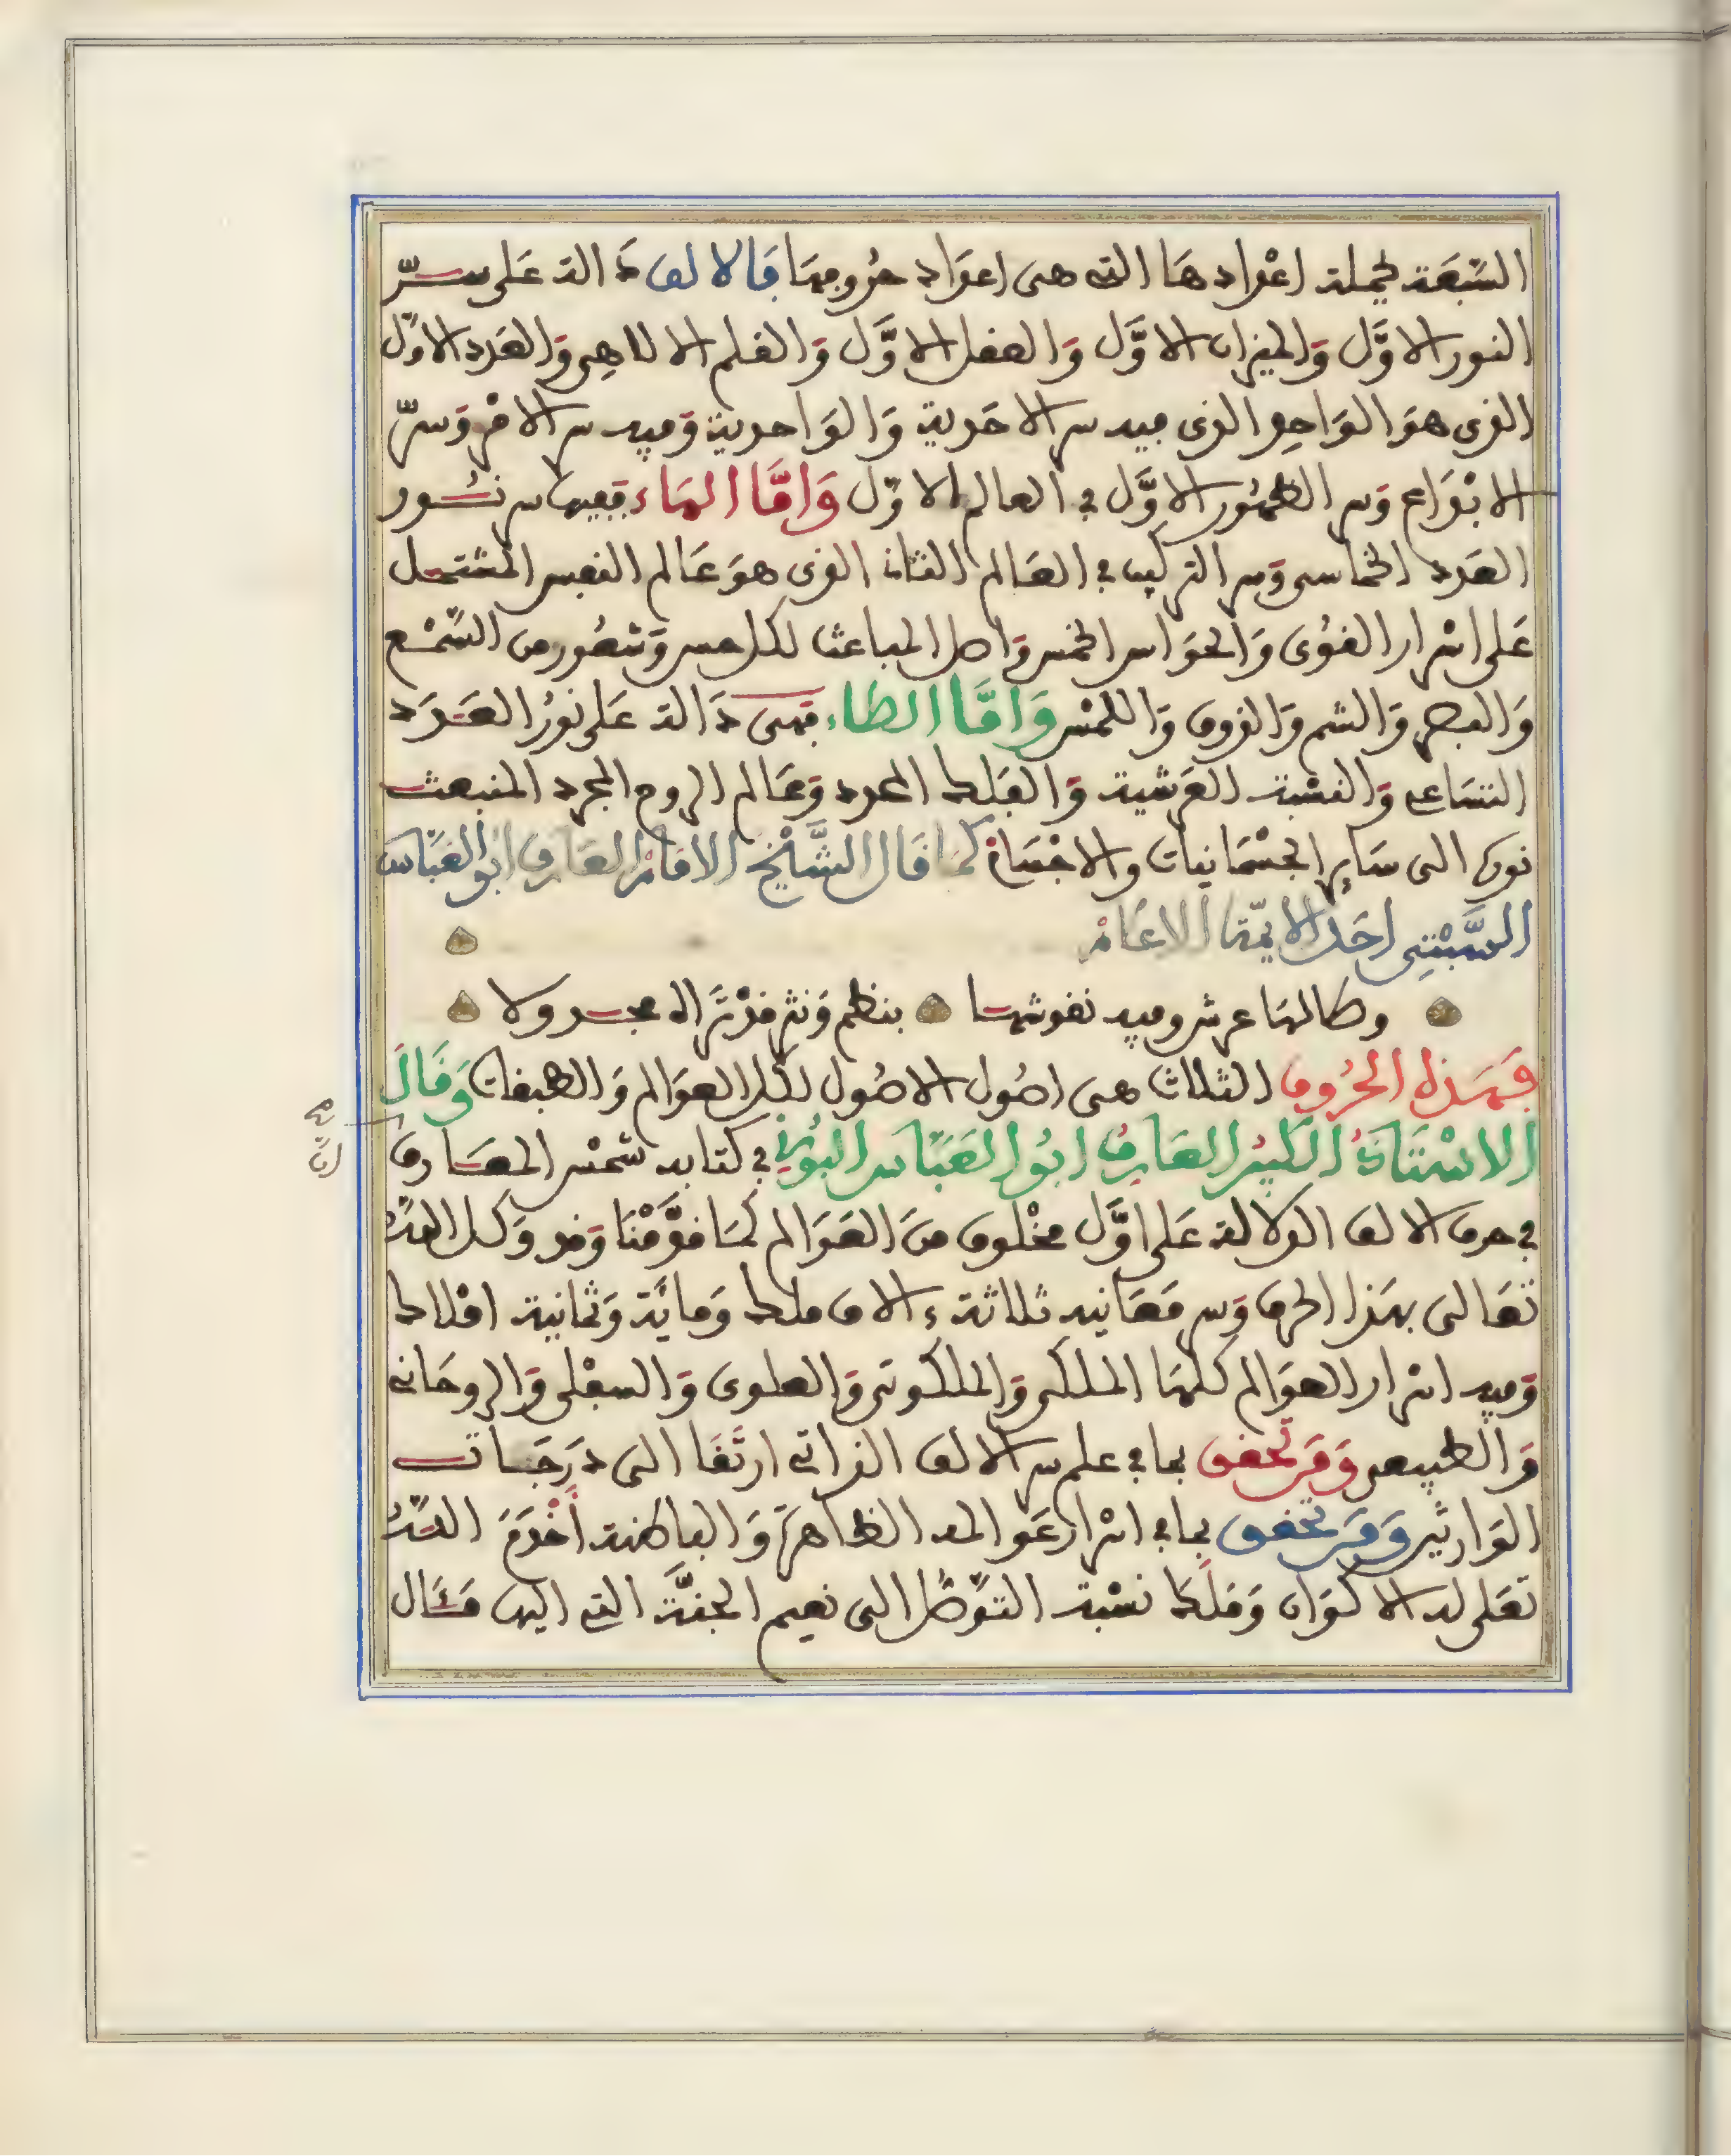 السَّبْعَة لجملة اعْداد هَا التى هى اعَداد حُروفِهَا فَالالف دَالة عَلى سـرّ
النور الاوَّل وَالميزان الاوَّل وَالعقل الاوَّل وَالقلم الالاهِى وَالعَدد الاوّل
الذى هوَ الوَاحِد الذى فيه سر الاحَدية وَالوَاحدية وَفيه سر الامْر وَسرّ
الابْدَاع وَسر الظهُور الاوَّل في العالم الاوّل وَامَّا الهَاء ففيها سر نـُور
العَدد الخماسى وَسر التركيب في العَالم الثانى الذى هوَ عَالم النفس المشتمل
عَلى اسْرار القُوى وَالحوَاس الخمس وَاصل المباعث لكل حس وَشعُور من السَّمْع
وَالبصر وَالشم وَالذوق وَاللمْس وَامَّا الطاء فهى دَالة عَلى نورُ العَدَد
التسَاعى وَالنسْبة العَرشية وَالفَلك المحدد وَعَالم الروح المجرد المنبعث
نوره الى سَاير الجسْمَانيات والاجْسَام كمَا قَال الشَّيْخ الامَامُ العَارف ابُو العَبَّاس
السَّبْتِى احَد الايمَّة الاعَامْ
وطا لهَا عرش وفيه نقوشهـا بنظم وَنثر قدْ تَرَاه مجـدولا
فهَذه الحُروف الثلاث هى اصُول الاصُول لكل العوَالم وَالطبقات وَقَالَ
الاسْتَاذُ الكبيُر العَارِفُ ابُو العَبَّاس البُونِي في كتابه شمْس المعَـارف
في حرف الالف الدلالة عَلى اوَّل مخْلوق منَ العَوَالم كمَا قدَّمْنَا وَقد وَكل اللهُ
تعَالى بهَذا الحرف وَسر مَعَانيه ثلاثة ءالاف ملك وَمايَة وَثمانية املاك
وَفيه اسْرار العوَالم كلهَا الملكى وَالملكوتى وَالعلوى وَالسفْلى وَالروحَانى
وَالطبيعى وَمَن تحقق بما في علم سر الالف الذاتى ارتَقَا الى دَرَجَـاتـ
الوَارثين وَمَن تحقق بما في اسْرار عَوالمه الظاهرَة وَالباطنة أخْدَمَ اللهُ
تعَلى له الاكوَان وَمَلكا نسْبة التَّوصُّل الى نعيم الجنَّة التى اليها مَـئَال